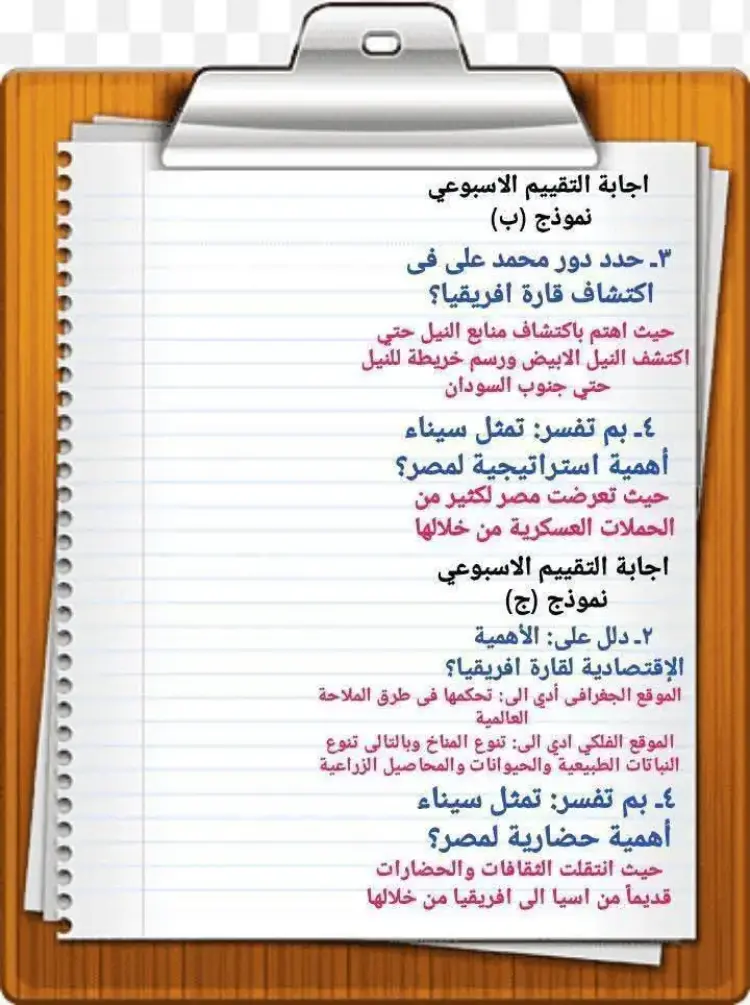 اجابة التقييم الاسبوعي
نموذج (ب)
٣ـ حدد دور محمد على فى
اكتشاف قارة افريقيا؟
حيث اهتم باكتشاف منابع النيل حتي
اكتشف النيل الابيض ورسم خريطة للنيل
حتي جنوب السودان
٤ـ بم تفسر: تمثل سيناء
أهمية استراتيجية لمصر؟
حيث تعرضت مصر لكثير من
الحملات العسكرية من خلالها
اجابة التقييم الاسبوعي
نموذج (ج)
٢ـ دلل على: الأهمية
الإقتصادية لقارة افريقيا؟
الموقع الجغرافى أدي الى: تحكمها فى طرق الملاحة
العالمية
الموقع الفلكي ادي الى: تنوع المناخ وبالتالى تنوع
النباتات الطبيعية والحيوانات والمحاصيل الزراعية
٤ـ بم تفسر: تمثل سيناء
أهمية حضارية لمصر؟
حيث انتقلت الثقافات والحضارات
قديماً من اسيا الى افريقيا من خلالها